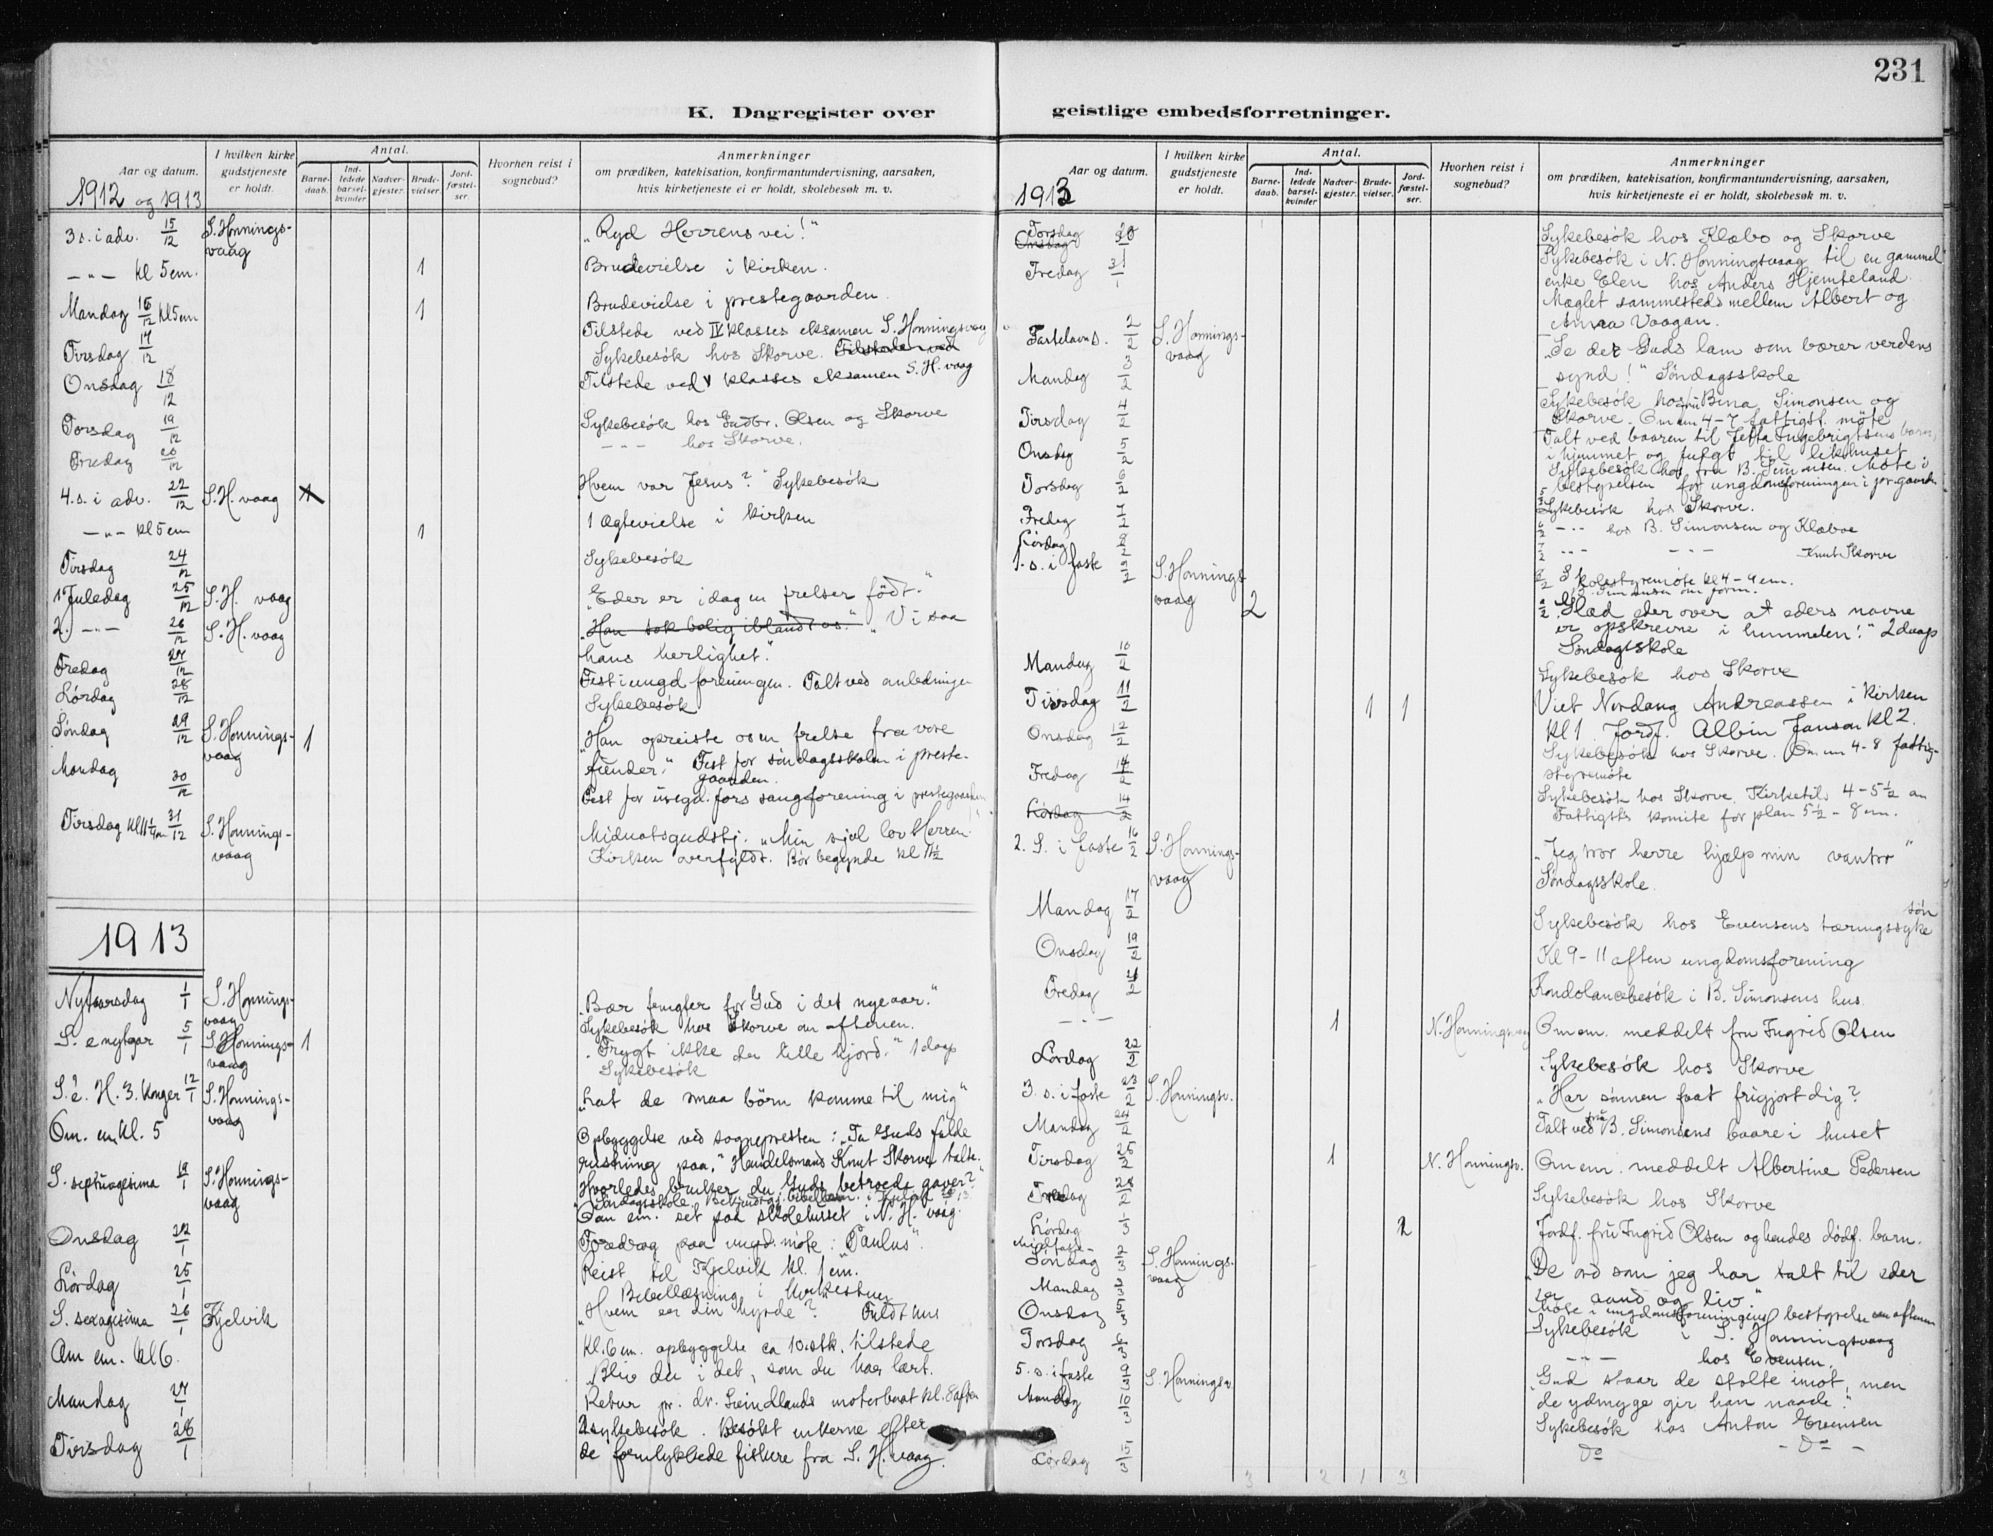 231
K. Dagregister over geistlige embedsforretninger.
Aar og datum.
I hvilken kirke gudstjeneste er holdt.
Antal.
Barne-daab.
Ind-ledede barsel-kvinder.
Nadver-gjester.
Brude-vielser.
Jord-fæstel-ser.
Hvorhen reist i sognebud?
Anmerkninger
om prædiken, katekisation, konfirmantundervisning, aarsaken,
hvis kirketjeneste ei er holdt, skolebesøk m. v.
1912 og 1913
3 s. i adv. 15/12 S. Honnings-vaag „Ryd Herrens vei!“
—„— kl 5 em. 1 Brudevielse i kirken.
Mandag 16/12 kl 5 em 1 Brudevielse i prestegaarden.
Tirsdag 17/12 Tilstede ved IV klasses eksamen S. Honningsvaag
Sykebesök hos Skorve. Tilstede ved
Onsdag 18/12 Tilstede ved V klasses eksamen S. H. vaag
Torsdag 19/12 Sykebesök hos Gudbr. Olsen og Skorve
Fredag 20/12 — „ — hos Skorve.
4. s. i adv. 22/12 S. H. vaag 1 „Hvem var Jesus?“ Sykebesök
—„— kl 5 em 1 1 Ægtevielse i kirken
Tirsdag 24/12 Sykebesök
1 Juledag 25/12 S. H. vaag „Eder er idag en frelser födt.“
2. —„— 26/12 S. H. vaag „Han tok bolig iblandt os.“ „Vi saa
hans herlighet.“
Fredag 27/12 Fest i ungd. foreningen. Talt ved anledningen
Lördag 28/12 Sykebesök
Söndag 29/12 S. Honnings-vaag 1 „Han opreiste os en frelse fra vore
fiender.“ Fest for söndagsskolen i preste-
gaarden.
Mandag 30/12 Fest for ungd. fors sangforening i prestegaarden
Tirsdag kl 11 31/12 S. Honnings-vaag Midnatsgudstj. „Min sjel lov Herren“
Kirken overfyldt. Bör begynde kl 11 1/2
1913
Nytaarsdag 1/1 S. Honnings-vaag „Bær frugter for Gud i det nye aar.“
Sykebesök hos Skorve om aftenen.
S. e nytaar 5/1 S. Honnings-vaag 1 „Frygt ikke du lille hjord.“ 1 daap
Sykebesök
S. e. H. 3. konger 12/1 S. Honnings-vaag „Lat de smaa börn komme til mig“
Om. em kl. 5 Opbyggelse ved sognepresten: „Ta Guds fulde
rustning paa.“ Handelsmand Knut Skorve talte.
S. septuagesima 19/1 S. Honnings-vaag „Hvorledes bruker du Guds betroede gaver?“
Söndagsskole
Om em. set paa skolehuset i N. H. vaag.
Onsdag 22/1 Foredrag paa ungd. möte: „Paulus“.
Lördag 25/1 Reist til Kjelvik kl. 1 em.
Bibellæsning i kirkestuen
S. sexagesima 26/1 Kjelvik „Hvem er din hyrde?“ Fuldt hus
Om em. kl 6. Kl. 6 em. opbyggelse ca 10 stk. tilstede
„Bliv du i det, som du har lært.
Mandag 27/1 Retur pr. dr. Lindlands motorbaat kl. 8 aften
Tirsdag 28/1 2 sykebesök. Besökt enkerne efter
de forulykkede fiskere fra S. H. vaag.
1913
Aar og datum.
I hvilken kirke gudstjeneste er holdt.
Antal.
Barne-daab.
Ind-ledede barsel-kvinder.
Nadver-gjester.
Brude-vielser.
Jord-fæstel-ser.
Hvorhen reist i sognebud?
Anmerkninger
om prædiken, katekisation, konfirmantundervisning, aarsaken,
hvis kirketjeneste ei er holdt, skolebesøk m. v.
Torsdag Onsdag 30/1 Sykebesök hos Klæbo og Skorve
Fredag 31/1 Sykebesök i N. Honningsvaag til en gammel
enke Elen hos Anders Hjemteland.
Mæglet sammesteds mellem Albert og
Anna Vaagan.
Fastelavns. 2/2 S. Honnings-vaag „Se det Guds lam som bærer verdens
synd!“ Söndagsskole
Mandag 3/2 Sykebesök hos fru Bina Simonsen og
Skorve. Om em 4-7 fattigst. möte
Tirsdag 4/2 Talt ved baaren til Jetta Ingebrigtsens barn,
i hjemmet og fulgt til likhuset
Onsdag 5/2 Sykebesök hos fru B. Simonsen. Möte i
bestyrelsen for ungdomsforeningen i pr.gaarden
Torsdag 6/2 Sykebesök hos Skorve.
Fredag 7/2 —„— hos B. Simonsen og Klæboe
Lördag 8/2 —„— —„— Knut Skorve
Skolestyremöte kl 4-9 em.
1. s. i faste 9/2 S. Honnings-vaag 2 „Glæd eder over at eders navne
er opskrevne i himmelen!“ 2 daap
Söndagsskole
Mandag 10/2 Sykebesök hos Skorve
Tirsdag 11/2 1 1 Viet Nordang Andreassen i kirken
kl 1. Jordf. Albin Jansen kl 2.
Onsdag 12/2 Sykebesök hos Skorve. Om em 4-8 fattig-
styremöte
Fredag 14/2 Sykebesök hos Skorve. Kirketils. 4-5 1/2 em
Lördag 14/2 Fattigsts komite for plan 5 1/2 - 8 em.
2. S. i faste 16/2 S. Honnings-vaag „Jeg tror herre hjælp min vantro“
Söndagsskole.
Mandag 17/2 Sykebesök hos Evensens tæringssyke sön
Onsdag 19/2 Kl 9-11 aften ungdomsforening
Fredag 21/2 Kondolancebesök i B. Simonsens hus.
—„— 1 N. Honningsvaag Om em. meddelt fru Ingrid Olsen
Lördag 22/2 Sykebesök hos Skorve
3. s. i faste 23/2 S. Honningsv. „Har sönnen faat frigjort dig?
Mandag 24/2 Talt ved fru B. Simonsens baare i huset
Tirsdag 25/2 1 N. Honningsv. Om em. meddelt Albertine Pedersen
Fredag 28/2 Sykebesök hos Skorve
Lördag 1/3 2 Jordf. fru Ingrid Olsen og hendes dödf. barn.
Midfaste- Söndag 2/3 S. Honnings-vaag „De ord som jeg har talt til eder
er aand og liv“
Mandag 3/3 Möte i ungdomsforeningens bestyrelse om aftenen
Onsdag 5/3 Sykebesök i S. Honningsvaag
Torsdag 6/3 —„— hos Evensen.
5. s. i faste 9/3 S. Honningsv. „Gud staar de stolte imot, men
de ydmyge gir han naade.“
Mandag 10/3 Sykebesök hos Anton Evensen
Lördag 15/3 Do — Do —
3 2 1 3